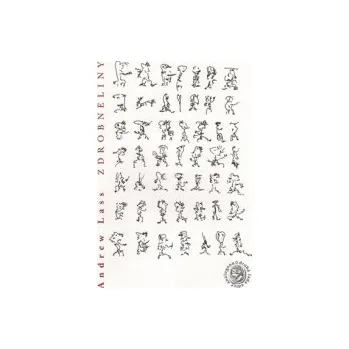 Andrew Lass ZDROBNELINY